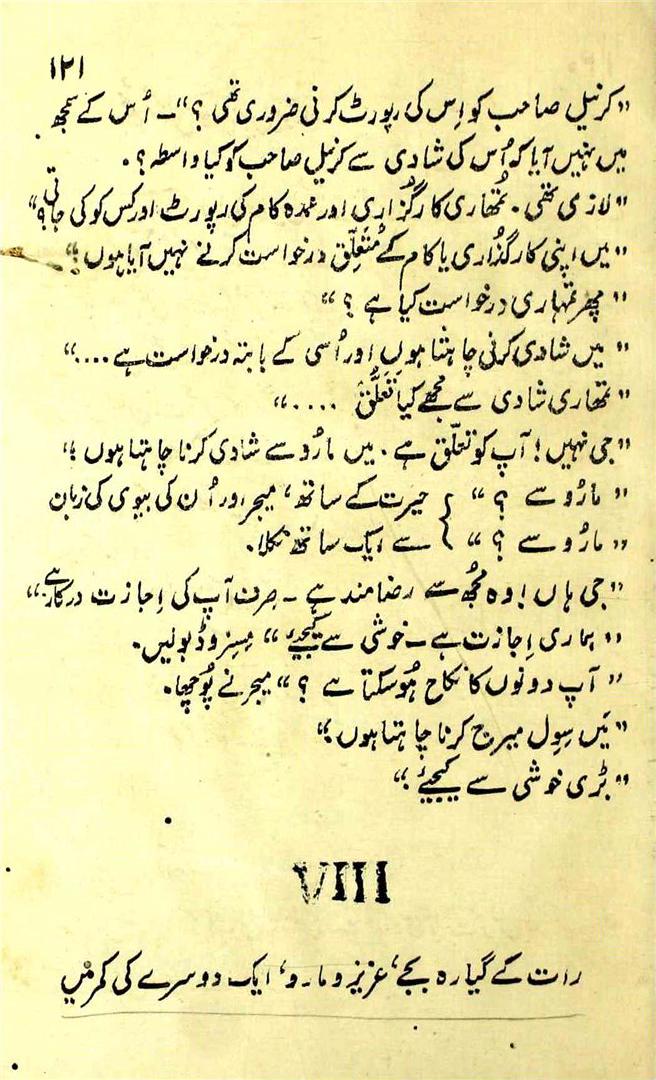 ۱۲۱
"کرنیل صاحب کو اِس کی رپورٹ کرنی ضروری تھی؟" ـ اُس کے سمجھ
میں نہیں آیا کہ اُس کی شادی سے کرنیل صاحب کو کیا واسطہ؟.
"لازمی تھی. تُمھاری کارگُزاری اور عمدہ کام کی رپورٹ اور کس کو کی جاتی؟"
"میں اپنی کارگذاری یا کام کے مُتعلّق درخواست کرنے نہیں آیا ہوں؛"
"پھر تمہاری درخواست کیا ہے؟"
"میں شادی کرنی چاہتا ہوں اور اُسی کے بابتہ درخواست ہے...."
"تمھاری شادی سے مجھے کیا تَعَلُّق ...."
"جی نہیں! آپ کو تعلّق ہے. میں مارُو سے شادی کرنا چاہتا ہوں؛"
"مارُو سے؟" } حیرت کے ساتھ، میجر اور اُن کی بیوی کی زبان
"مارُو سے؟" } سے ایک ساتھ نکلا.
"جی ہاں! وہ مجُھ سے رضامند ہے ـ صِرف آپ کی اِجازت درکار ہے"
"ہماری اِجازت ہے ـ خوشی سے کیجیٔے" مِسِز وڈ بولیں.
"آپ دونوں کا نکاح ہُوسکتا ہے؟" میجر نے پُوچھا.
"مَیں سِوِل میرج کرنا چاہتا ہوں؛"
"بڑی خوشی سے کیجیٔے؛"
VIII
رات کے گیارہ بجے، عزیز و مارو، ایک دوسرے کی کمر میں